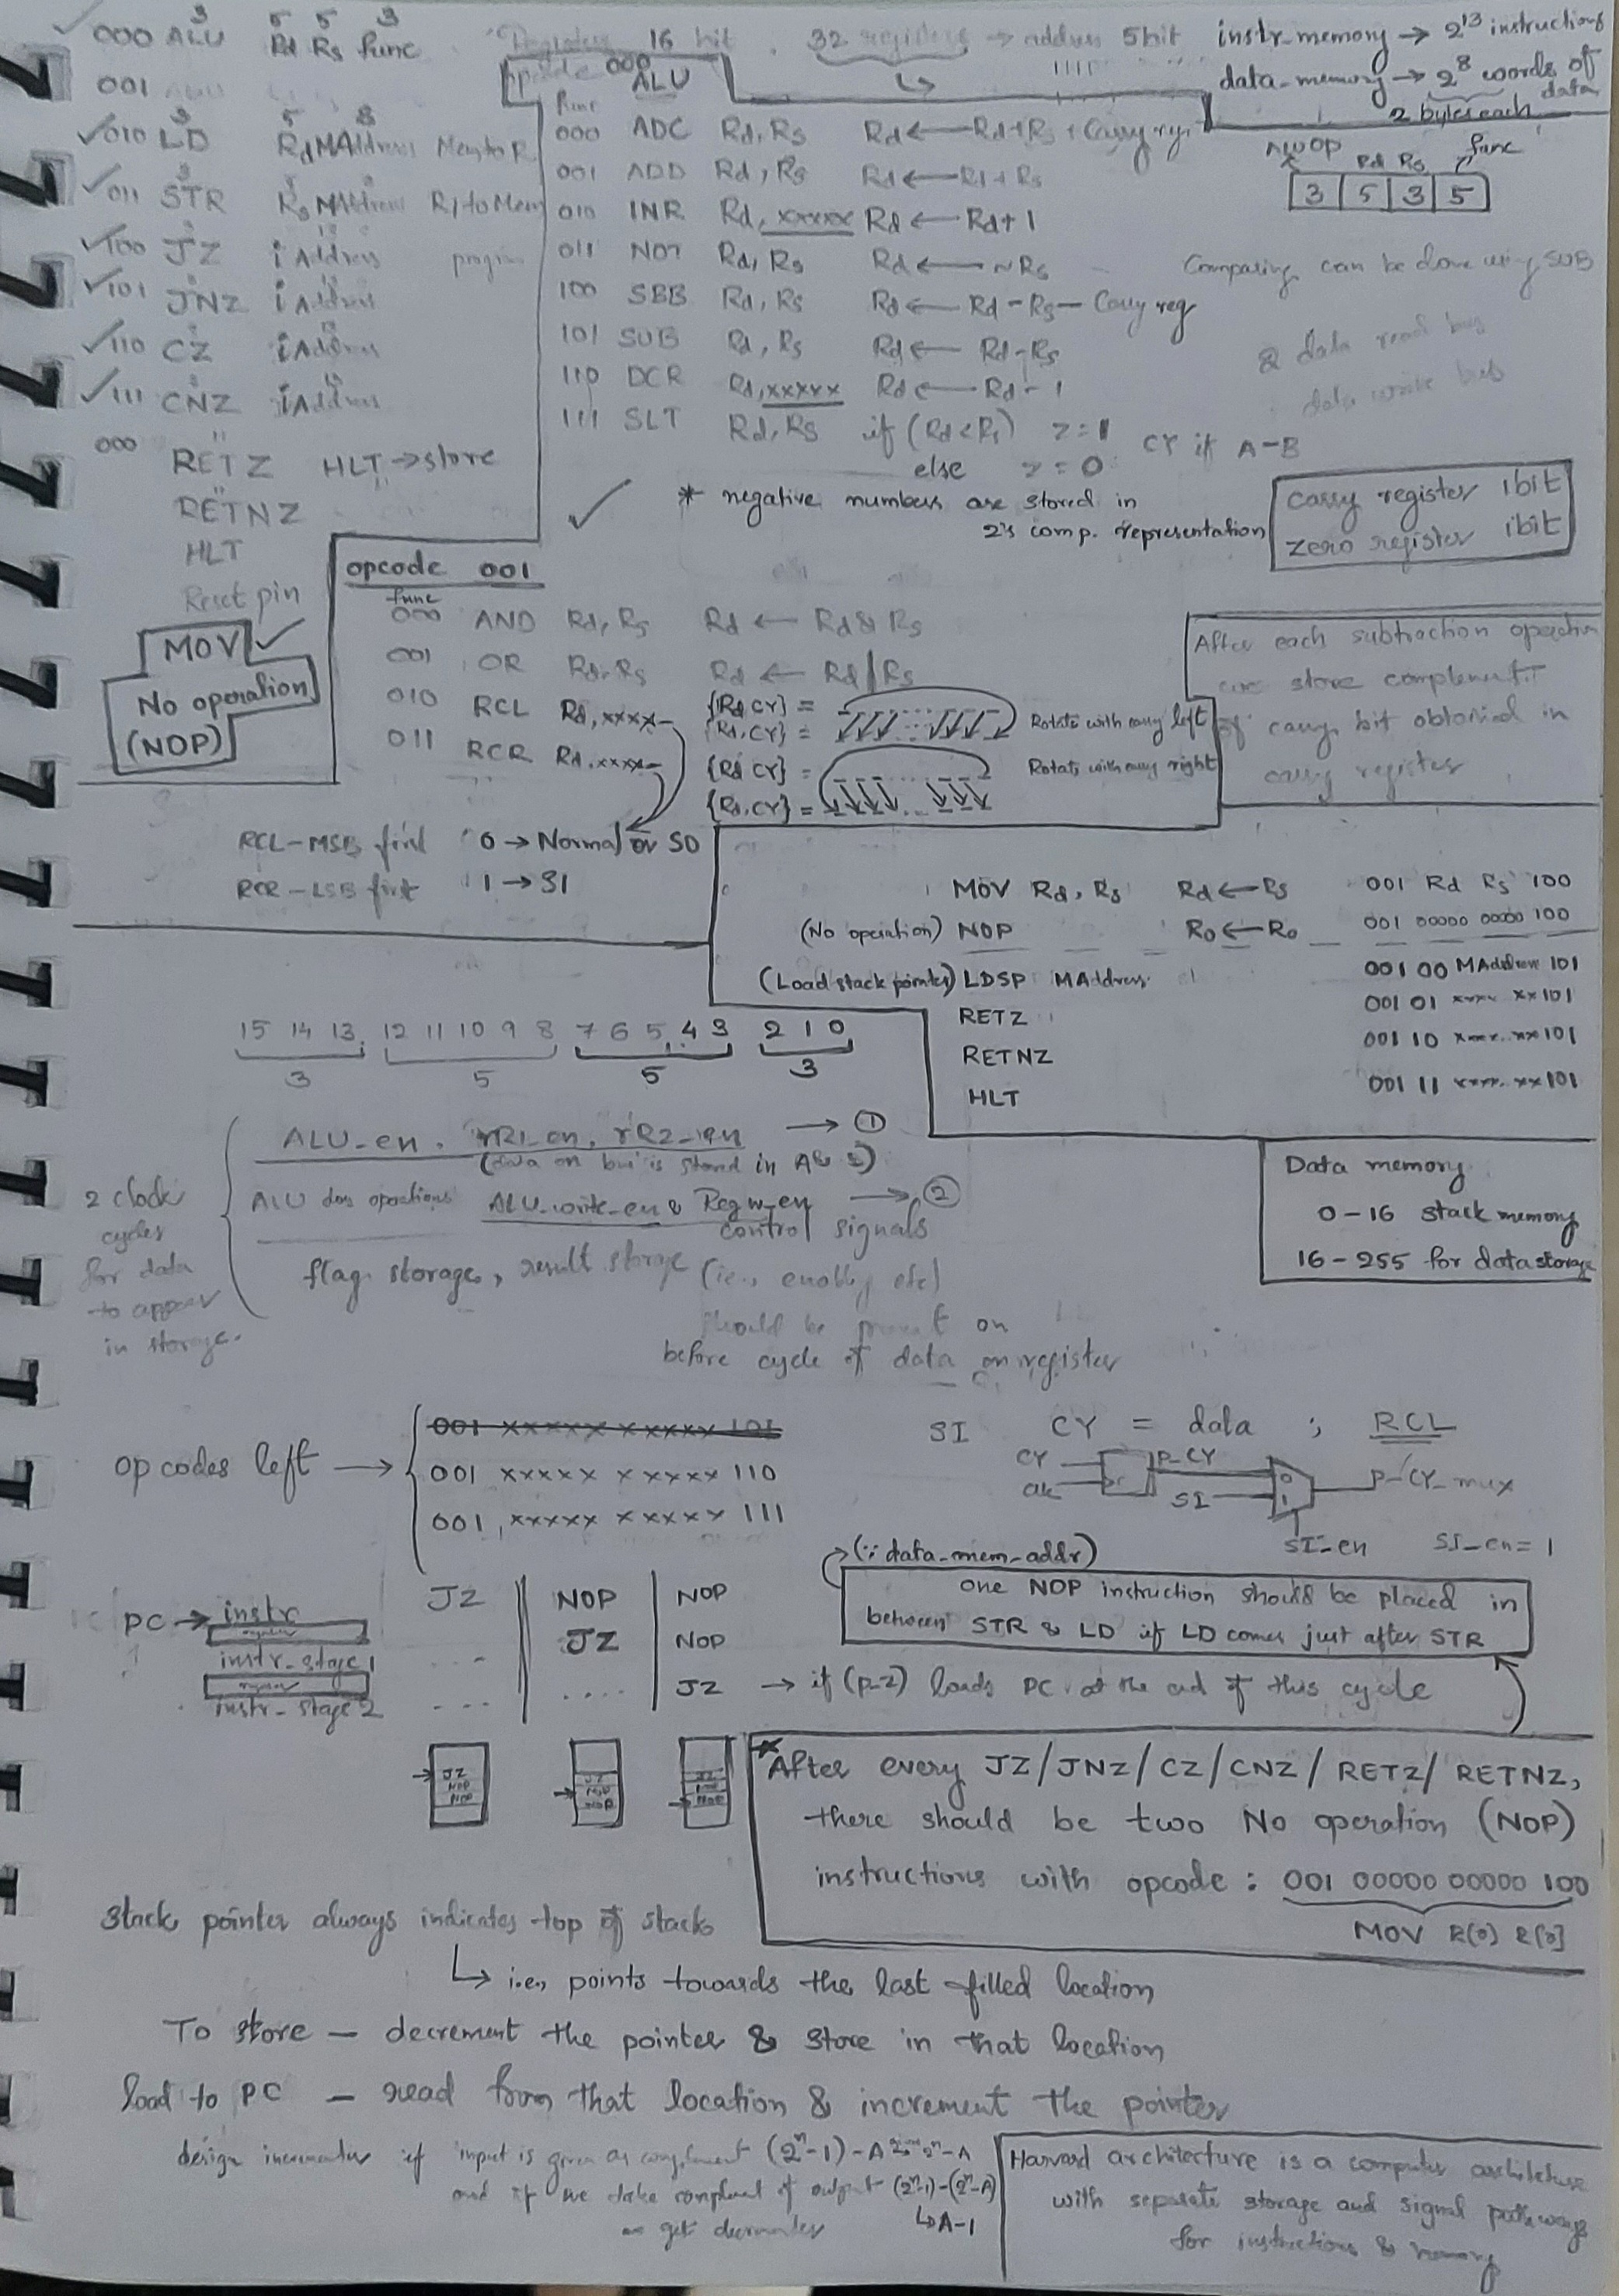 000 ALU Rd Rs func
3 5 5 3
001
010 LD Rd MAddress Mem to R
3 5 8
011 STR Rs MAddress R to Mem
100 JZ iAddress
101 JNZ iAddress
110 CZ iAddress
111 CNZ iAddress
000 RETZ HLT → store
RETNZ
HLT
Reset pin
MOV
No operation
(NOP)
Registers 16 bit, 32 registers → address 5 bit
instr_memory → 2^13 instructions
data_memory → 2^8 words of data
2 bytes each
opcode 000
ALU
func
000 ADC Rd, Rs Rd ← Rd + Rs + Carry
001 ADD Rd, Rs Rd ← Rd + Rs
010 INR Rd, xxxxx Rd ← Rd + 1
011 NOT Rd, Rs Rd ← ~Rs
100 SBB Rd, Rs Rd ← Rd - Rs - Carry reg
101 SUB Rd, Rs Rd ← Rd - Rs
110 DCR Rd, xxxxx Rd ← Rd - 1
111 SLT Rd, Rs if (Rd < Rs) z = 1 CY if A-B
else z = 0
Rd Rs func
3 5 3 5
Comparing can be done using SUB
& data read bus
data write bus
* negative numbers are stored in
2's comp. representation
carry register 1bit
zero register 1bit
opcode 001
func
000 AND Rd, Rs Rd ← Rd & Rs
001 OR Rd, Rs Rd ← Rd | Rs
010 RCL Rd, xxxx- {Rd, CY} =
{Rd, CY} = Rotate with carry left
011 RCR Rd, xxxx- {Rd CY} = Rotate with carry right
{Rd, CY} =
After each subtraction operation
we store complement
of carry bit obtained in
carry register
RCL - MSB first 0 → Normal or S0
RCR - LSB first 1 → S1
MOV Rd, Rs Rd ← Rs 001 Rd Rs 100
(No operation) NOP R0 ← R0 001 00000 00000 100
(Load stack pointer) LDSP MAddress 001 00 MAddress 101
RETZ 001 01 xxxx xx 101
RETNZ 001 10 xxxx..xx 101
HLT 001 11 xxxx..xx 101
15 14 13 12 11 10 9 8 7 6 5 4 3 2 1 0
3 5 5 3
2 clock
cycles
for data
to appear
in storage.
ALU_en, rR1_en, rR2_en → ①
(data on bus is stored in A & B)
ALU does operations ALU_write_en & Regw_en → ②
control signals
flag storage, result storage (ie., enabling etc)
should be present on
before cycle of data on register
Data memory
0-16 stack memory
16-255 for data storage
op codes left →
001 xxxxx xxxxx 101
001 xxxxx xxxxx 110
001 xxxxx xxxxx 111
SI CY = data ; RCL
CY P_CY
clk SI P_CY_mux
SI_en SI_en = 1
(∵ data_mem_addr)
one NOP instruction should be placed in
between STR & LD if LD comes just after STR
PC → instr
instr_stage 1
instr_stage 2
JZ NOP NOP
... JZ NOP
... .... JZ → if (p-z) loads PC at the end of this cycle
JZ
NOP
NOP
JZ
NOP
NOP
JZ
NOP
NOP
* After every JZ/JNZ/CZ/CNZ/RETZ/RETNZ,
there should be two No operation (NOP)
instructions with opcode : 001 00000 00000 100
MOV R[0] R[0]
Stack pointer always indicates top of stack
↳ i.e., points towards the last filled location
To store — decrement the pointer & store in that location
load to PC — read from that location & increment the pointer
design incrementer if input is given as complement (2^n-1) - A 2^n - A
and if we take complement of output (2^n-1)-(2^n-A)
we get decrementer ↳ A-1
Harvard architecture is a computer architecture
with separate storage and signal pathways
for instructions & memory